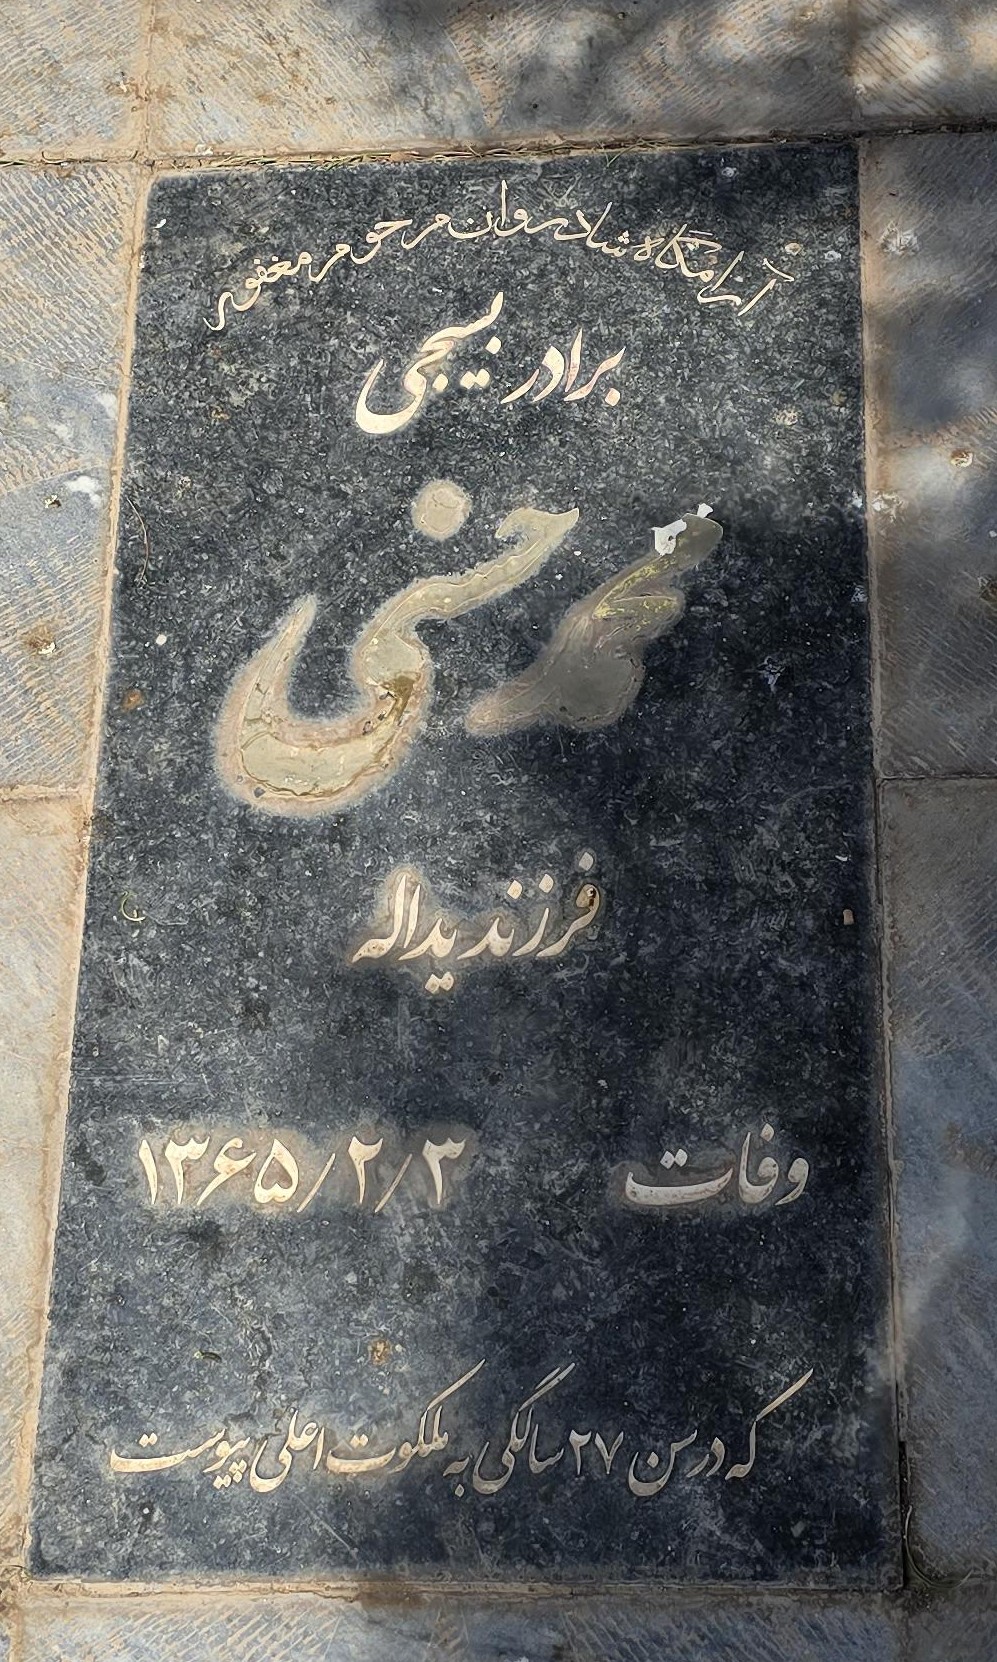 آرامگاه شادروان مرحوم مغفور
برادر بسیجی
محمد حسنی
فرزند یداله
وفات ۱۳۶۵/۲/۳
که در سن ۲۷ سالگی به ملکوت اعلی پیوست